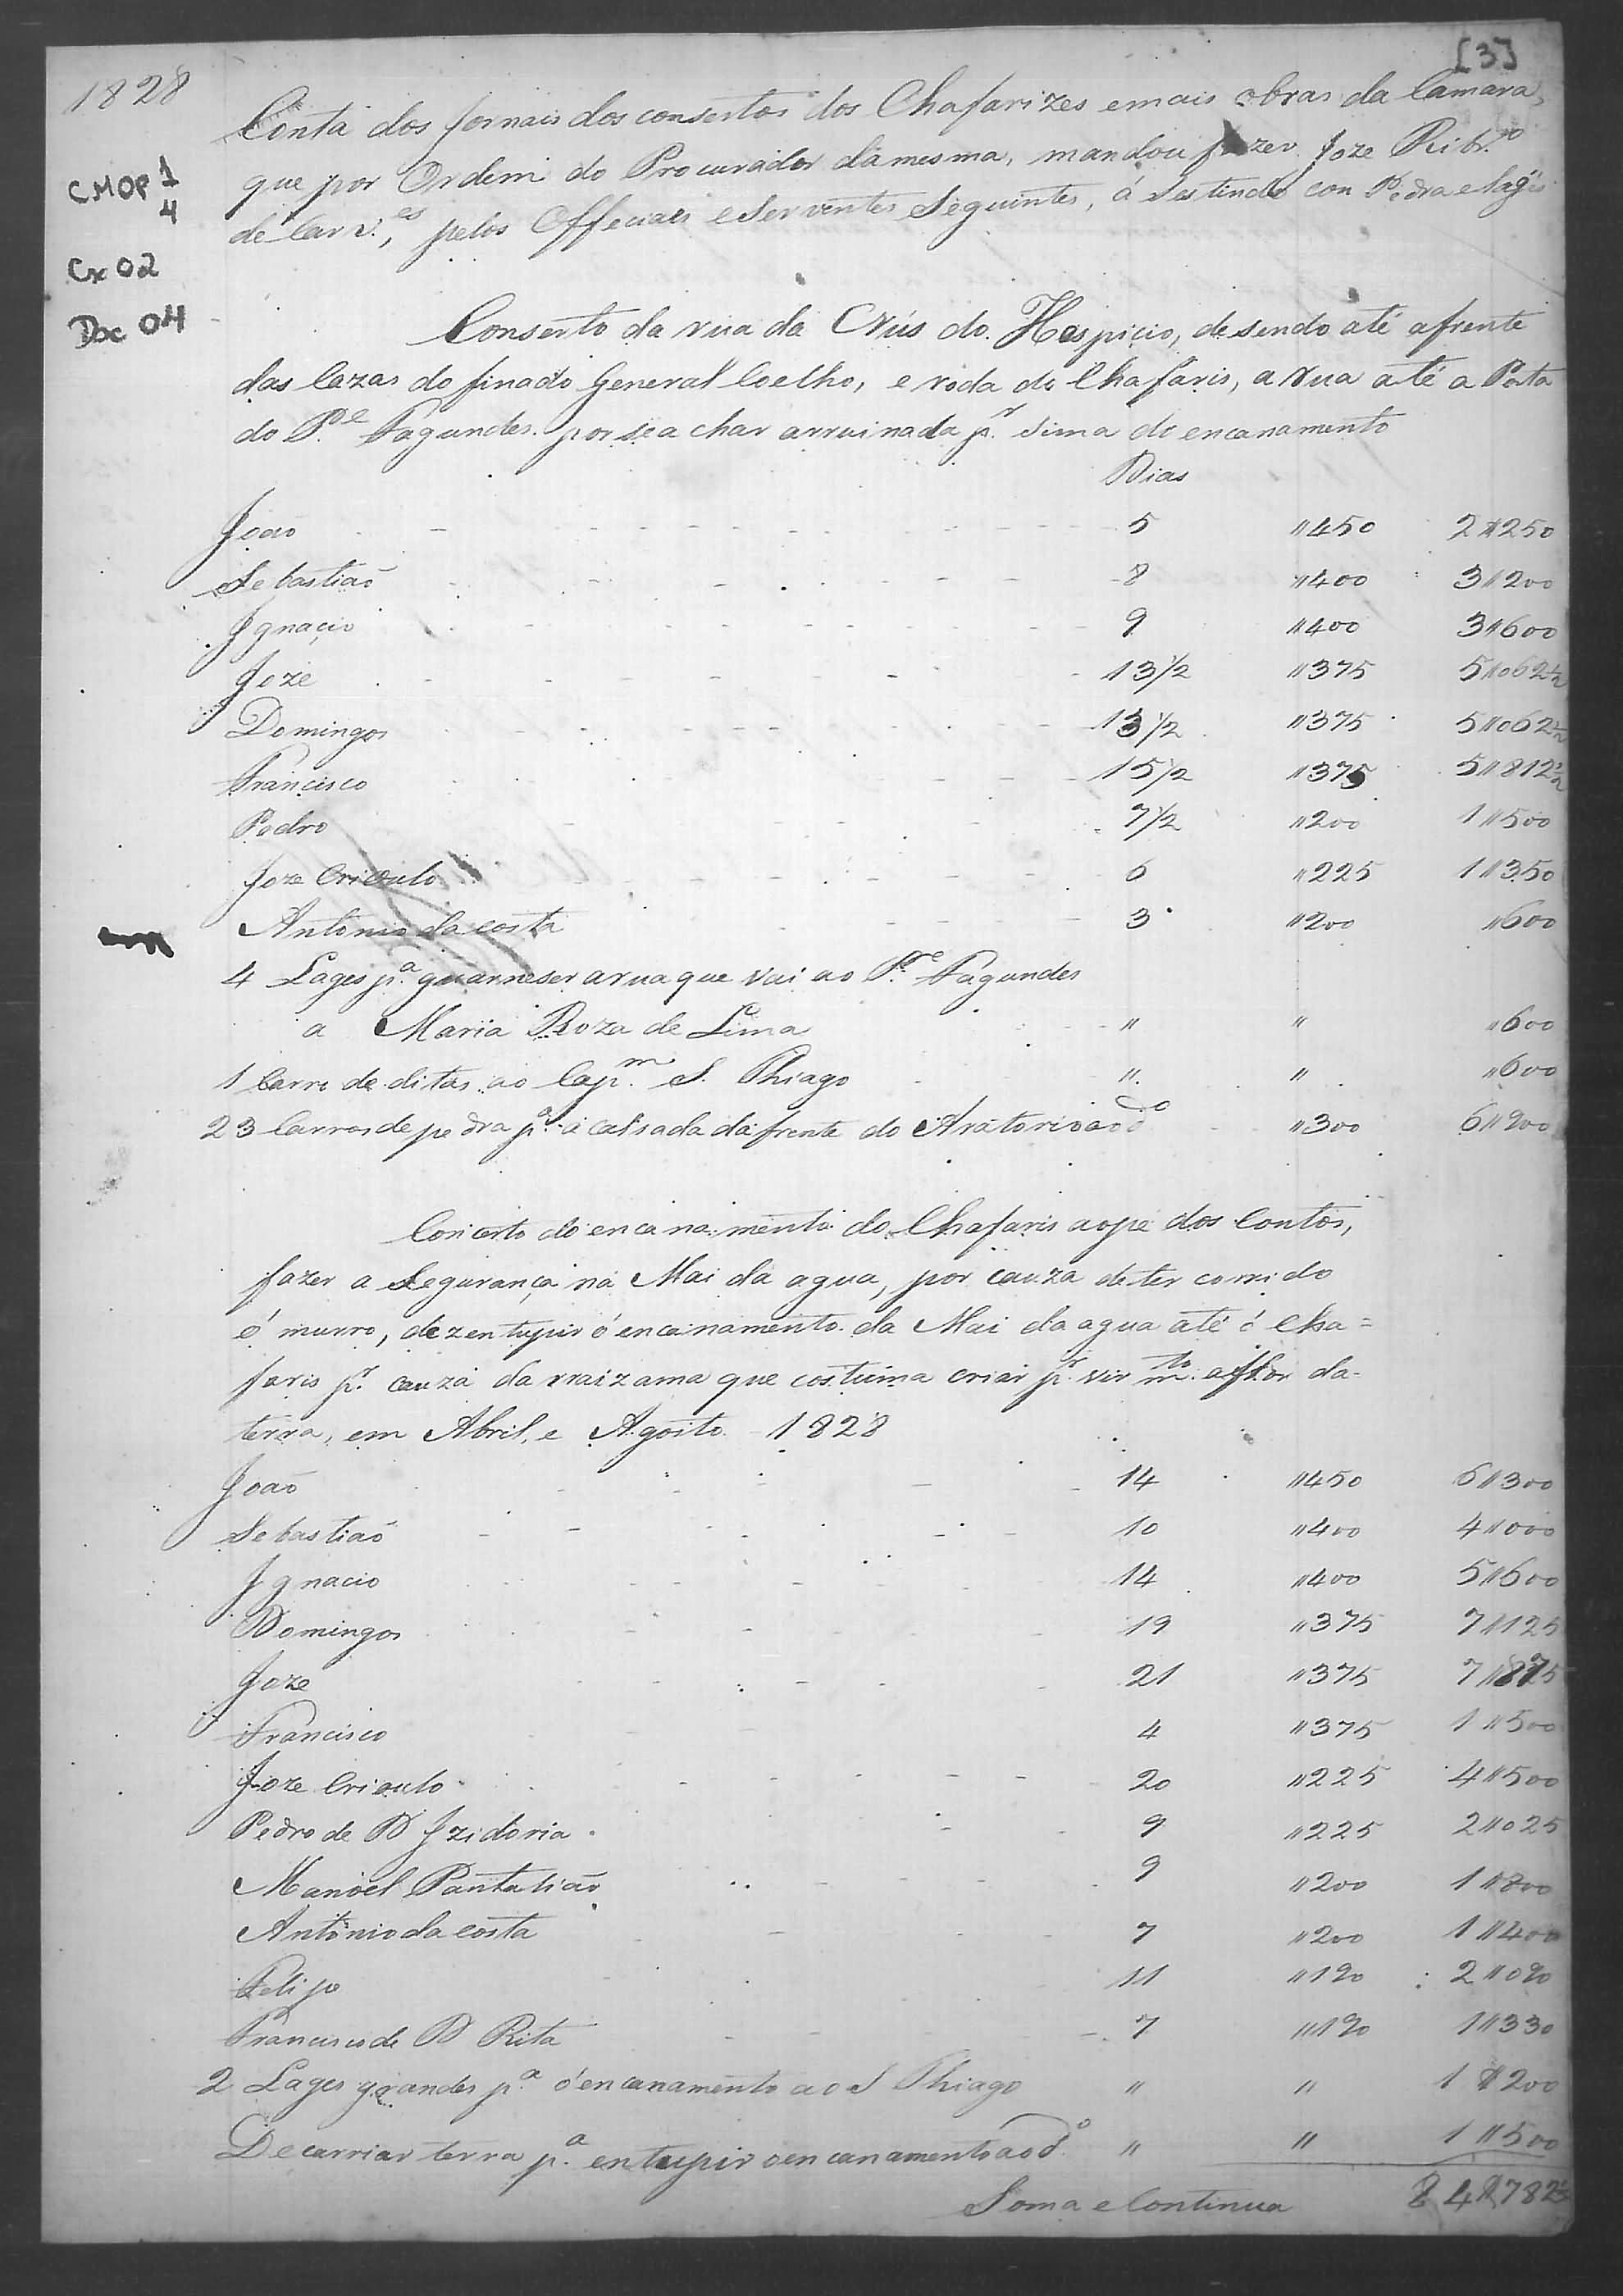 [3]
1828
CMOP 1
4
Cx 02
Doc 04
Conta dos Jornais dos consertos dos Chafarizes emais obras da Camara,
que por Ordem do Procurador damesma, mandou fazer Joze Ribr.º
de Carv.es, pelos Officiais e Serventes Seguintes, á Sestindo con Pedra e Lages
Conserto da rua da Crús do Hospicio, desendo até afrente
das Cazas do finado General Coelho, e roda do Chafaris, a rua até a Porta
do P.e Fagundes por se a char arruinada p.r sima do encanamento
Dias
João 5 "450 2"250
Sebastião 8 "400 3"200
Ignacio 9 "400 3"600
Joze 13 1/2 "375 5"062 1/2
Domingos 13 1/2 "375 5"062 1/2
Francisco 15 1/2 "375 5"812 1/2
Pedro 7 1/2 "200 1"500
Joze Crioulo 6 "225 1"350
Antonio da costa 3 "200 "600
4 Lages p.a guarneser arua que vai ao P.e Fagundes
a Maria Roza de Lima " " "600
1 Carro de ditas ao Cap.m S. Thiago " " "600
23 Carros de pedra p.a a calsada da frente do Aratorio ao d.o "300 6"900
Concerto do encanamento do Chafaris aope dos Contos,
fazer a Segurança na Mai da agua, por cauza deter comido
ó murro, dezentupir ó encanamento da Mai da agua até ó Cha=
faris p.r cauza da rraizama que costuma criar p.r vir m.to afflor da
terra, em Abril, e Agosto 1828
João 14 "450 6"300
Sebastião 10 "400 4"000
Ignacio 14 "400 5"600
Domingos 19 "375 7"125
Joze 21 "375 7"875
Francisco 4 "375 1"500
Joze Crioulo 20 "225 4"500
Pedro de D Izidoria 9 "225 2"025
Manoel Pantalião 9 "200 1"800
Antonio da costa 7 "200 1"400
Felipe 11 "190 2"090
Francisco de D Rita 7 "190 1"330
2 Lages grandes p.a ó encanamento ao S Thiago " " 1"200
De carriar terra p.a entupir o encanamento ao d.o " " 1"500
Soma e Continua 84"782 1/2